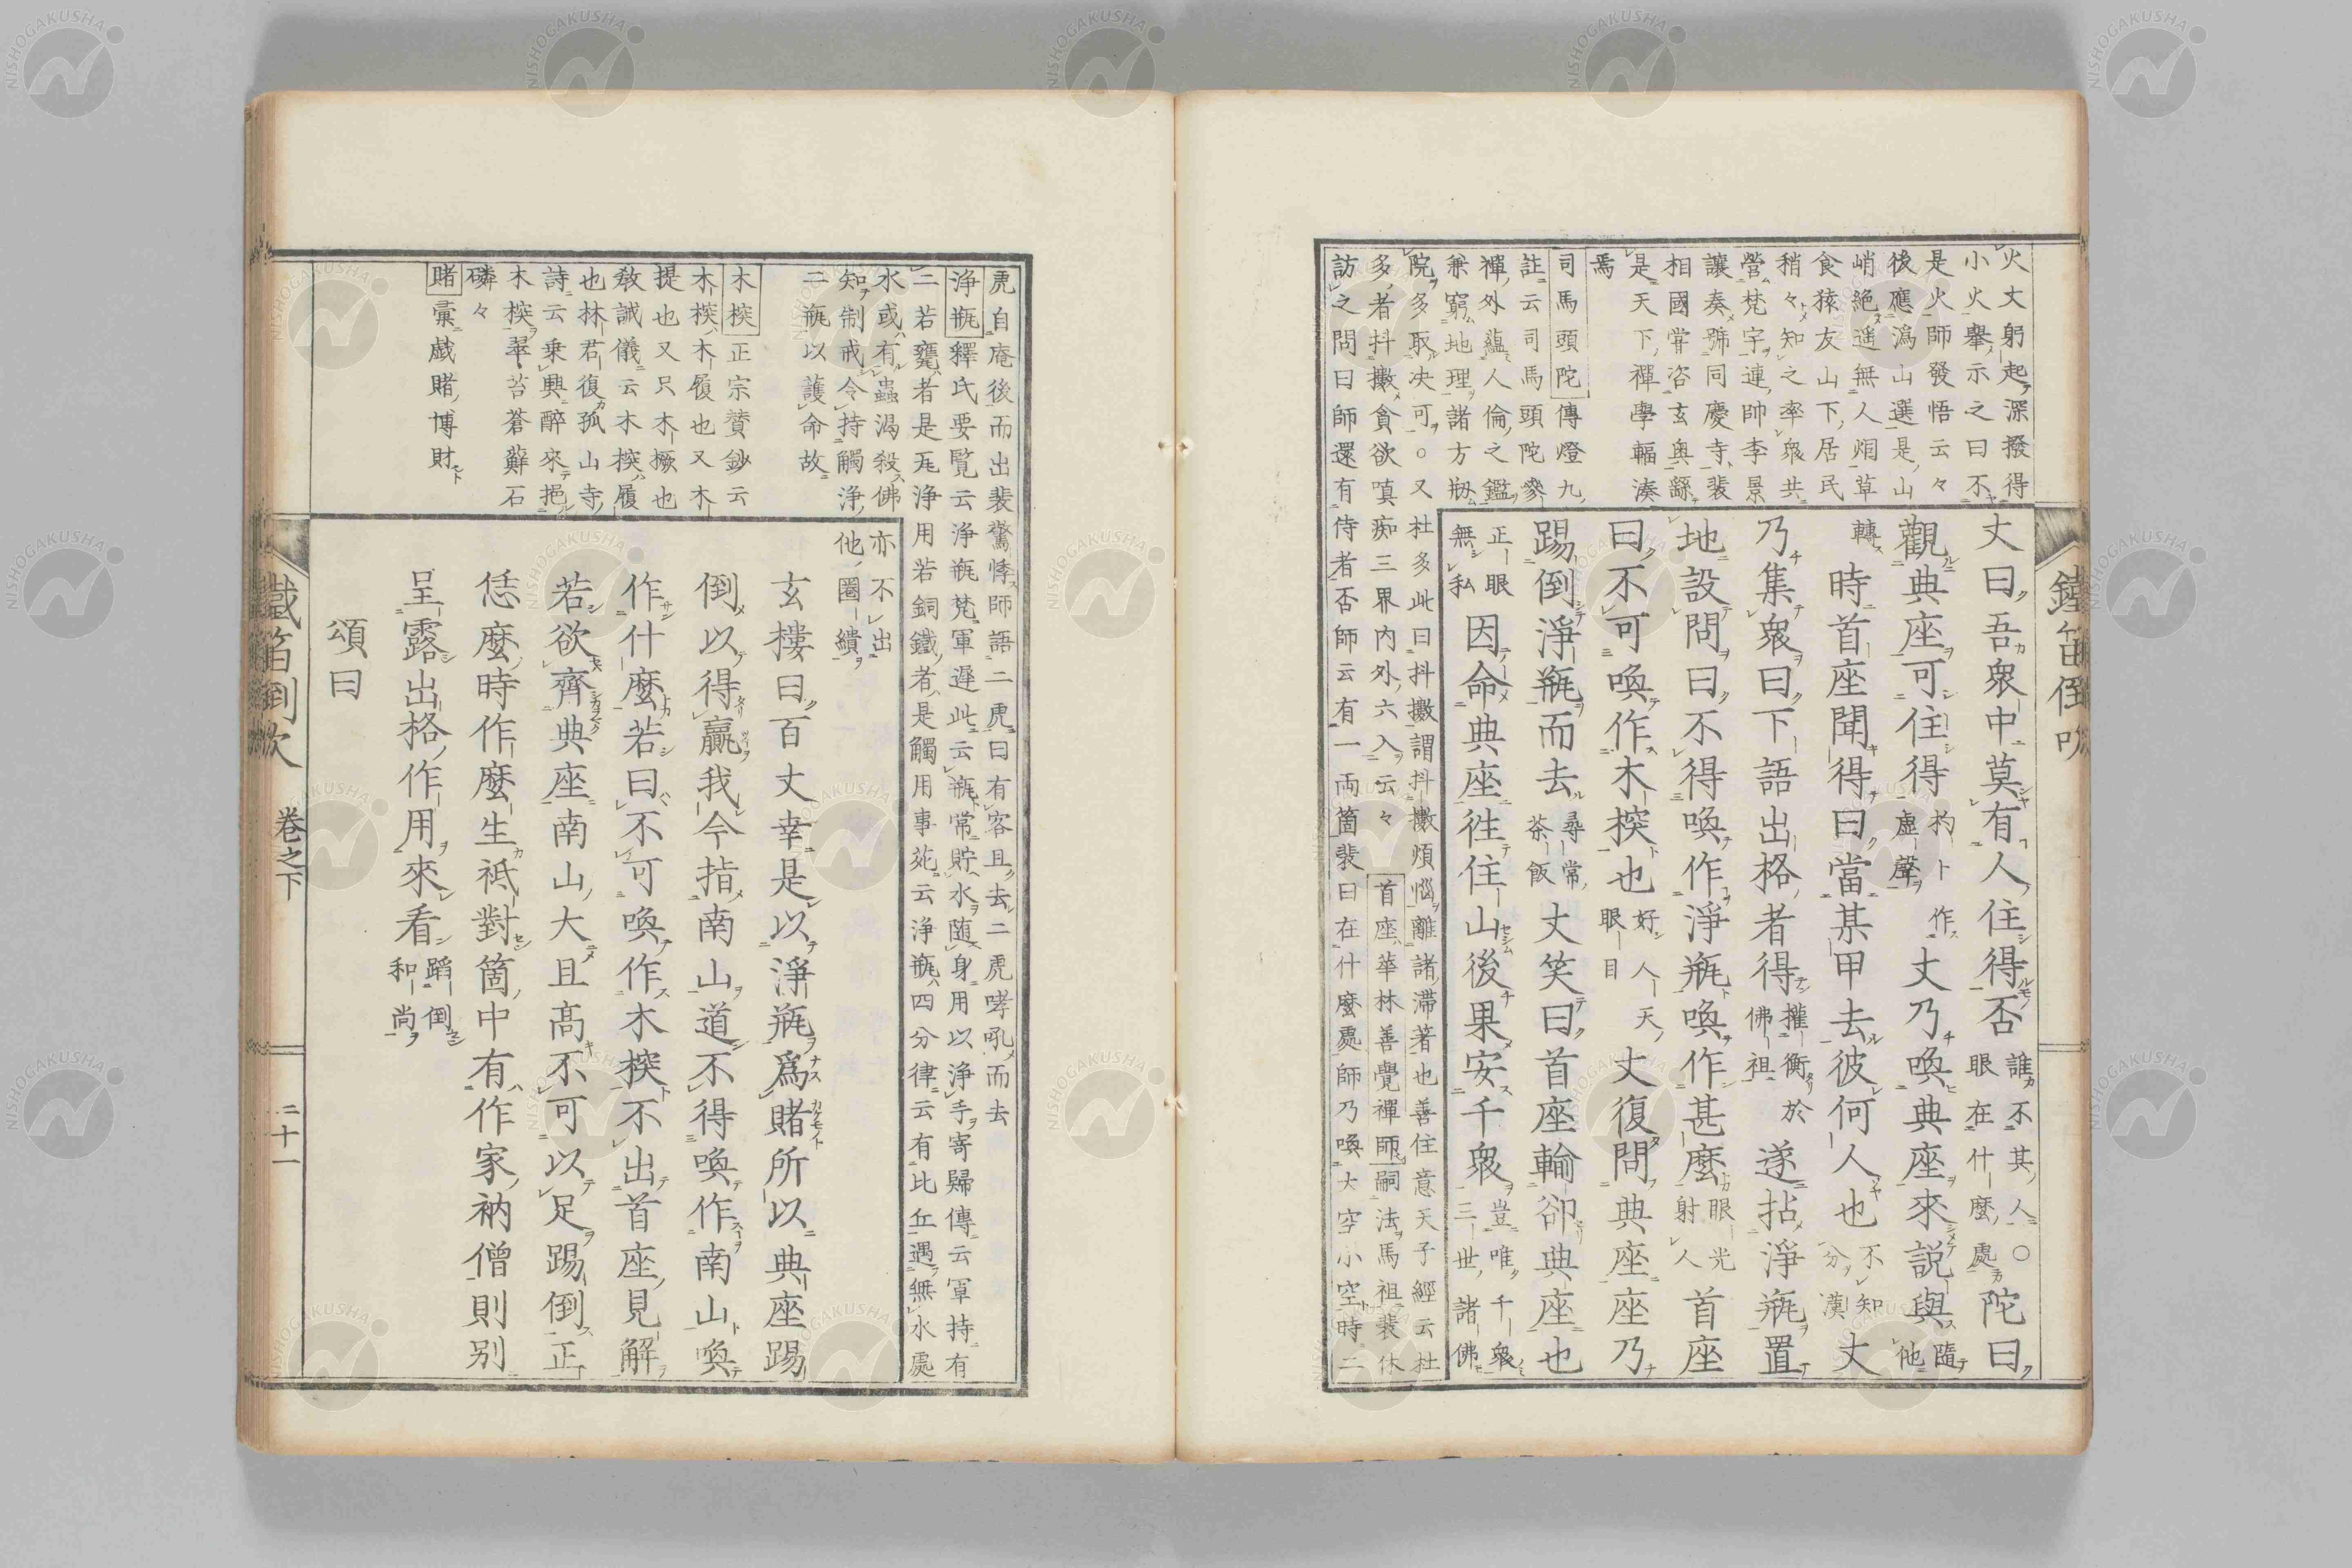 鐵笛倒吹
火丈躬起深撥得
小火擧示之曰不
是火師發悟云々
後應溈山選是山
峭絶遥無人烟草
食猿友山下居民
稍々知之率衆共
營梵宇連帥李景
讓奏號同慶寺裴
相國甞咨玄奥繇
是天下禪學輻湊
焉
司馬頭陀傳燈九
註云司馬頭陀參
禪外蘊人倫之鑑
兼窮地理諸方刱
丈曰吾衆中莫有人住得否誰不其人○眼在什麼處陀曰
觀典座可住得杓卜虚聲作丈乃喚典座來説與隨他
轉時首座聞得曰當某甲去彼何人也不知分漢丈
乃集衆曰下語出格者得權衡佛祖於遂拈淨瓶置
地設問曰不得喚作淨瓶喚作甚麼眼光射人首座
曰不可喚作木㮇也好人天眼目丈復問典座座乃
踢倒淨瓶而去尋常茶飯丈笑曰首座輸卻典座也
正眼無私因命典座往住山後果安千衆豈唯千衆三世諸佛
院多取决可○又杜多此曰抖擻謂抖擻煩惱離諸滯著也善住意天子經云杜
多者抖擻貪欲嗔痴三界内外六入云々首座華林善覺禪師嗣法馬祖裴休
訪之問曰師還有侍者否師云有一両箇裴曰在什麼處師乃喚大空小空時二
虎自庵後而出裴驚悸師語二虎曰有客且去二虎哮吼而去
浄瓶釋氏要覧云浄瓶梵軍遲此云瓶常貯水随身用以浄手寄歸傳云軍持有
二若甆者是瓦浄用若銅鐵者是觸用事苑云浄瓶四分律云有比丘遇無水處
水或有蟲渇殺佛
知制戒令持觸浄
二瓶以護命故
木㮇正宗賛鈔云
木㮇木履也又木
提也又只木橛也
敎誡儀云木㮇履
也林君復孤山寺
詩云乗興醉來挹
木㮇翠苔蒼蘚石
磷々
賭彙戯賭博財
亦不出
他圈繢
玄樓曰百丈幸是以淨瓶爲賭所以典座踢
倒以得贏我今指南山道不得喚作南山喚
作什麼若曰不可喚作木㮇不出首座見解
若欲齊典座南山大且髙不可以足踢倒正
恁麼時作麼生祗對箇中有作家衲僧則别
呈露出格作用來看蹈倒和尚
頌曰
鐵笛倒吹 卷之下 二十一
NISHOGAKUSHA